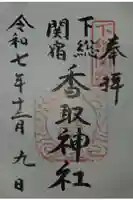 奉拝
下総
関宿
香取神社
令和七年十二月九日